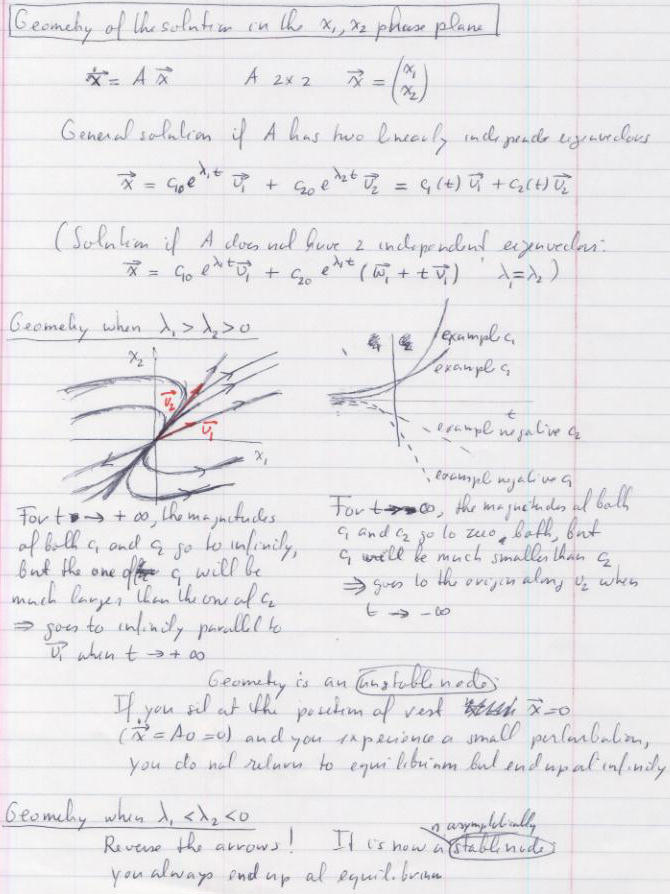 Geometry of the solution in the x₁, x₂ phase plane
ẋ⃗ = A x⃗   A 2x2   x⃗ = (x₁ x₂)
General solution if A has two linearly independe eigenvectors
x⃗ = c₁₀e^λ₁t v⃗₁ + c₂₀ e^λ₂t v⃗₂ = c₁(t) v⃗₁ + c₂(t) v⃗₂
(Solution if A does not have 2 independent eigenvectors:
x⃗ = c₁₀ e^λ₁t v⃗₁ + c₂₀ e^λ₁t (w⃗₁ + t v⃗₁)   λ₁=λ₂)
Geometry when λ₁ > λ₂ > 0
x₂
v⃗₂
v⃗₁
x₁
c₂
example c₁
example c₁
t
exampl negative c₂
exampl negative c₁
For t → + ∞, the magnitudes
of both c₁ and c₂ go to infinity,
but the one of c₁ will be
much larger than the one of c₂
⇒ goes to infinity parallel to
v⃗₁ when t → + ∞
For t → -∞, the magnitudes of both
c₁ and c₂ go to zero, both, but
c₁ will be much smaller than c₂
⇒ goes to the origin along v₂ when
t → -∞
Geometry is an unstable node:
If you sit at the position of rest x⃗=0
(ẋ⃗ = A0 = 0) and you experience a small perturbation,
you do not return to equilibrium but end up at infinity
Geometry when λ₁ < λ₂ < 0
n asymptotically
Reverse the arrows! It is now a stable node:
you always end up at equilibrium